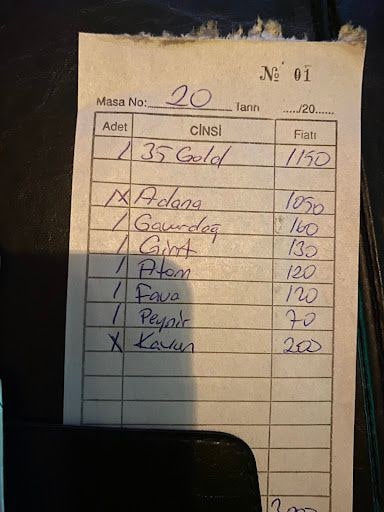 № 01
Masa No: 20 Tarih ...../20......
Adet CİNSİ Fiatı
/ 35 Gold 1150
Adana 1090
/ Gavurdağ 160
/ Girit 130
/ Atom 120
/ Fava 120
/ Peynir 70
X Kavun 200